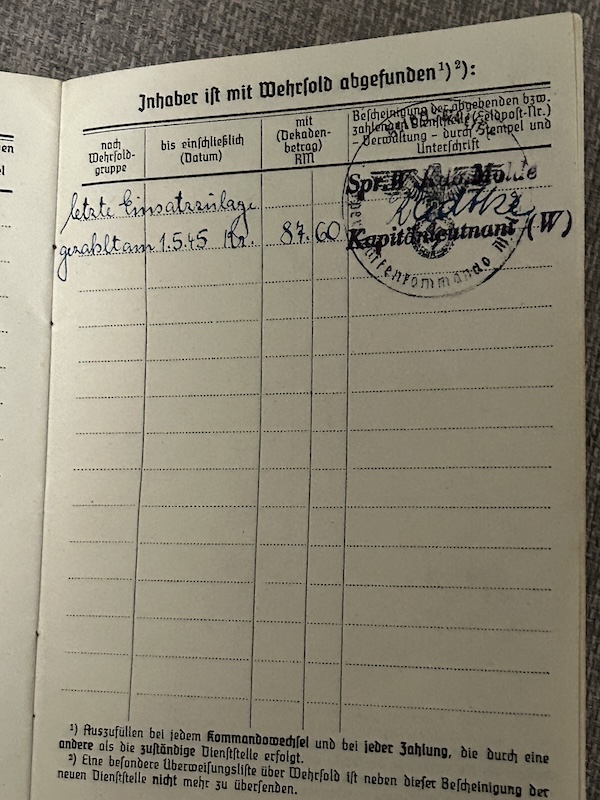 Inhaber ist mit Wehrsold abgefunden ¹) ²):
nach
Wehrsold-
gruppe
bis einschließlich
(Datum)
mit
(Dekaden-
betrag)
RM
Bescheinigung der abgebenden bzw.
zahlenden Dienststelle (Feldpost-Nr.)
– Verwaltung – durch Stempel und
Unterschrift
letzte Einsatzzulage
gezahlt am 1.5.45 Kr. 87.60
Spr.W. Kdo. Molde
Kapitänleutnant (W)
¹) Auszufüllen bei jedem Kommandowechsel und bei jeder Zahlung, die durch eine
andere als die zuständige Dienststelle erfolgt.
²) Eine besondere Überweisungsliste über Wehrsold ist neben dieser Bescheinigung der
neuen Dienststelle nicht mehr zu übersenden.